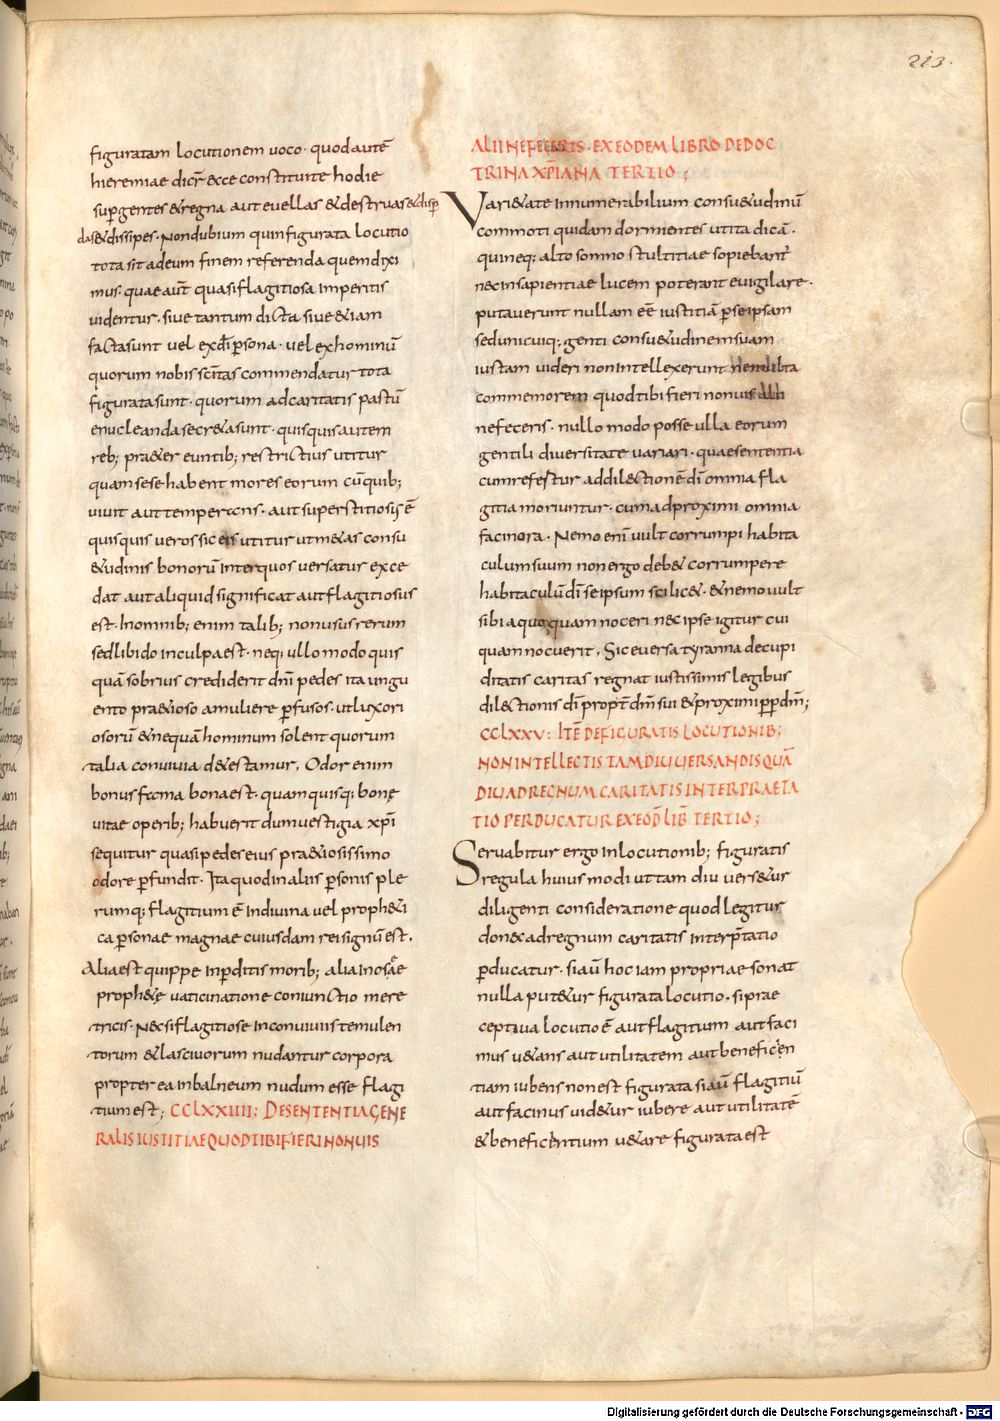 213.
figuratam locutionem uoco· quod autē
hieremiae dicr̄ ecce constitui te hodie
suꝑ gentes & regna aut euellas & destruas & disꝑ
das & dissipes· Non dubium quin figurata locutio
tota sit ad eum finem referenda quem dixi
mus· quae aut̄ quasi flagitiosa imperitis
uidentur· siue tantum dicta siue &iam
facta sunt uel ex dī ꝑsona· uel ex hominū
quorum nobis scītas commendatur tota
figurata sunt· quorum ad caritatis pastū
enucleanda secr&a sunt· quisquis autem
reb; pra&ereuntib; restrictius utitur
quam sese habent mores eorum cū quib;
uiuit aut temperans· aut superstitiosus ē
quisquis uero sic eis utitur ut m&as consu
&udinis bonorū inter quos uersatur exce
dat aut aliquid significat aut flagitiosus
est· In omnib; enim talib; non usus rerum
sed libido in culpa est· neq; ullo modo quis
quā sobrius crediderit dn̄i pedes ita ungu
ento pra&ioso a muliere ꝑfusos· ut luxori
osorū & nequā hominum solent quorum
talia conuiuia d&estamur, Odor enim
bonus fama bona est· quam quisq; bonę
uitae operib; habuerit dum uestigia xp̄i
sequitur quasi pedes eius pra&iosissimo
odore ꝑfundit· Ita quod in aliis ꝑsonis ple
rumq; flagitium ē in diuina uel proph&i
ca ꝑsonae magnae cuiusdam rei signū est.
Alia est quippe in ꝑditis morib; alia in osaeę
proph&ę uaticinatione coniunctio mere
tricis· Nec si flagitiose in conuiuiis temulen
torum & lasciuorum nudantur corpora
propterea in balneum nudum esse flagi
tium est; CCLXXIIII; DE SENTENTIA GENE
RALIS IUSTITIAE QUOD TIBI FIERI NON UIS
ALII NE FECERIS· EX EODEM LIBRO DE DOC
TRINA XP̄IANA TERTIO;
Vari&ate innumerabilium consu&udinū
commoti quidam dormientes ut ita dicā·
qui neq; alto somno stultitiae sopiebant̄
nec in sapientiae lucem poterant euigilare·
putauerunt nullam eē iustitiā ꝑ se ipsam
sed unicuiq; genti consu&udinem suam
iustam uideri non intellexerunt
commemorem quod tibi fieri non uis alii
ne feceris· nullo modo posse ulla eorum
gentili diuersitate uariari· quae sententia
cum refertur ad dil&ionē dī omnia fla
gitia moriuntur· cum ad proximi omnia
facinora· Nemo enī uult corrumpi habita
culum suum non ergo deb& corrumpere
habitaculū dī se ipsum scilic&· & nemo uult
sibi a quoquam noceri nec ipse igitur cui
quam nocuerit, Sic euersa tyranna decupi
ditatis caritas regnat iustissimis legibus
dilectionis dī propt̄ dm̄ sui & proximi ꝓp dm̄;
CCLXXV: ITĒ DE FIGURATIS LOCUTIONIB;
NON INTELLECTIS TAM DIU UERSANDIS QUĀ
DIU AD REGNUM CARITATIS INTERPRAETA
TIO PERDUCATUR EX EOD̄ LIB̄ TERTIO;
Seruabitur ergo in locutionib; figuratis
regula huiusmodi ut tam diu uers&ur
diligenti consideratione quod legitur
donec ad regnum caritatis interp̄tatio
ꝑducatur· si aū hoc iam propriae sonat
nulla put&ur figurata locutio· si prae
ceptiua locutio ē aut flagitium aut faci
mus u&ans aut utilitatem aut beneficen
tiam iubens non est figurata si aū flagitiū
aut facinus uid&ur iubere aut utilitatē
& beneficentium u&are figurata est
Digitalisierung gefördert durch die Deutsche Forschungsgemeinschaft - DFG